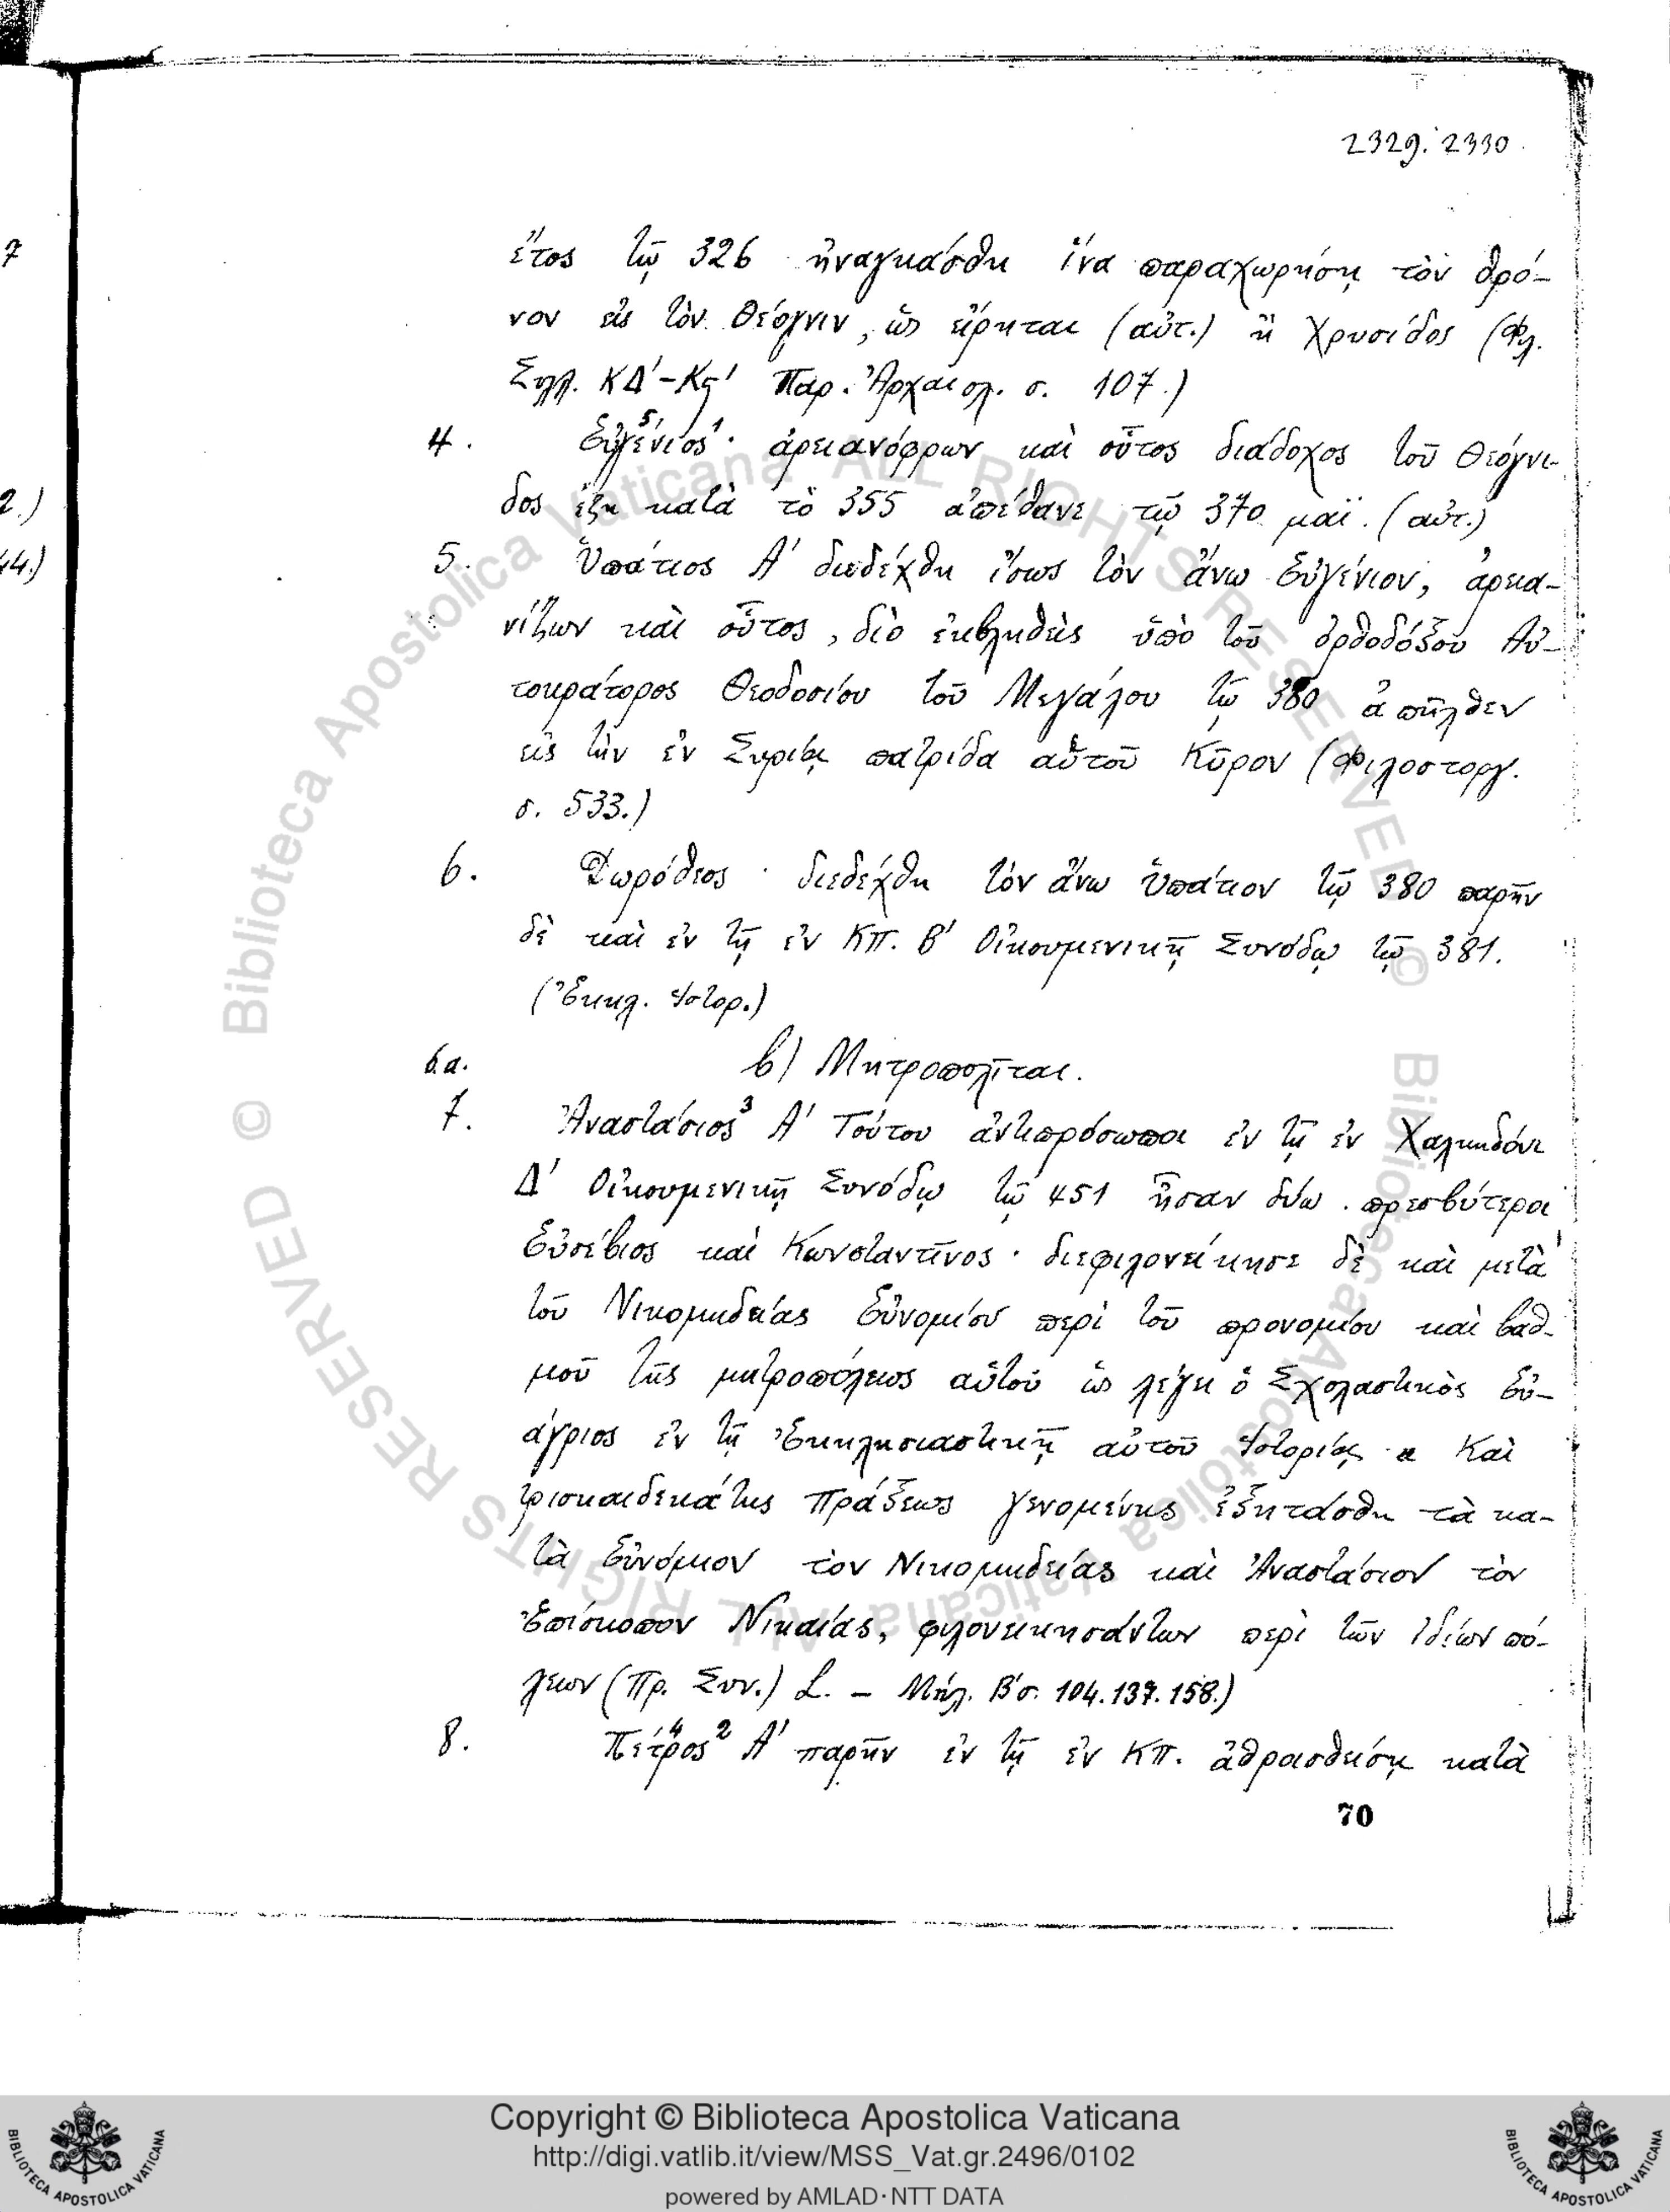 2329. 2330
ἔτος τῷ 326 ἠναγκάσθη ἵνα παραχωρήσῃ τὸν θρό-
νον εἰς τὸν Θέογνιν, ὡς εἴρηται (αὐτ.) ἢ Χρυσίδος (Φλ.
Συλλ. ΚΔ'-Κϛ' Παρ. Ἀρχαιολ. σ. 107.)
4. Εὐγένιος 5, 1· ἀρειανόφρων καὶ οὗτος διάδοχος τοῦ Θεόγνι-
δος ἔζη κατὰ τὸ 355 ἀπέθανε τῷ 370 μαΐ. (αὐτ.)
5. Ὑπάτιος Α' διεδέχθη ἴσως τὸν ἄνω Εὐγένιον, ἀρεια-
νίζων καὶ οὗτος, διὸ ἐκβληθεὶς ὑπὸ τοῦ ὀρθοδόξου Αὐ-
τοκράτορος Θεοδοσίου τοῦ Μεγάλου τῷ 380 ἀπῆλθεν
εἰς τὴν ἐν Συρίᾳ πατρίδα αὑτοῦ Κῦρον (Φιλοστοργ.
σ. 533.)
6. Δωρόθεος · διεδέχθη τὸν ἄνω Ὑπάτιον τῷ 380 παρῆν
δὲ καὶ ἐν τῇ ἐν Κπ. Β' Οἰκουμενικῇ Συνόδῳ τῷ 381.
(Ἐκκλ. Ἱστορ.)
6.α. β) Μητροπολῖται.
7. Ἀναστάσιος 3 Α' Τούτου ἀντιπρόσωποι ἐν τῇ ἐν Χαλκηδόνι
Δ' Οἰκουμενικῇ Συνόδῳ τῷ 451 ἦσαν δύω πρεσβύτεροι
Εὐσέβιος καὶ Κωνσταντῖνος · διεφιλονείκησε δὲ καὶ μετὰ
τοῦ Νικομηδείας Εὐνομίου περὶ τοῦ προνομίου καὶ βαθ-
μοῦ τῆς μητροπόλεως αὑτοῦ ὡς λέγει ὁ Σχολαστικὸς Εὐ-
άγριος ἐν τῇ Ἐκκλησιαστικῇ αὐτοῦ Ἱστορίᾳ « Καὶ
τρισκαιδεκάτης Πράξεως γενομένης ἐξητάσθη τὰ κα-
τὰ Εὐνόμιον τὸν Νικομηδείας καὶ Ἀναστάσιον τὸν
Ἐπίσκοπον Νικαίας, φιλονεικησάντων περὶ τῶν ἰδίων πό-
λεων (Πρ. Συν.) L. – Μήλ. Β' σ. 104.137.158.)
8. Πέτρος 4 2 Α' παρῆν ἐν τῇ ἐν Κπ. ἀθροισθείσῃ κατὰ
70
7
2.)
44.)
© Biblioteca Apostolica Vaticana ALL RIGHTS RESERVED
© Biblioteca Apostolica Vaticana ALL RIGHTS RESERVED
Copyright © Biblioteca Apostolica Vaticana
http://digi.vatlib.it/view/MSS_Vat.gr.2496/0102
powered by AMLAD·NTT DATA
BIBLIOTECA APOSTOLICA VATICANA
BIBLIOTECA APOSTOLICA VATICANA